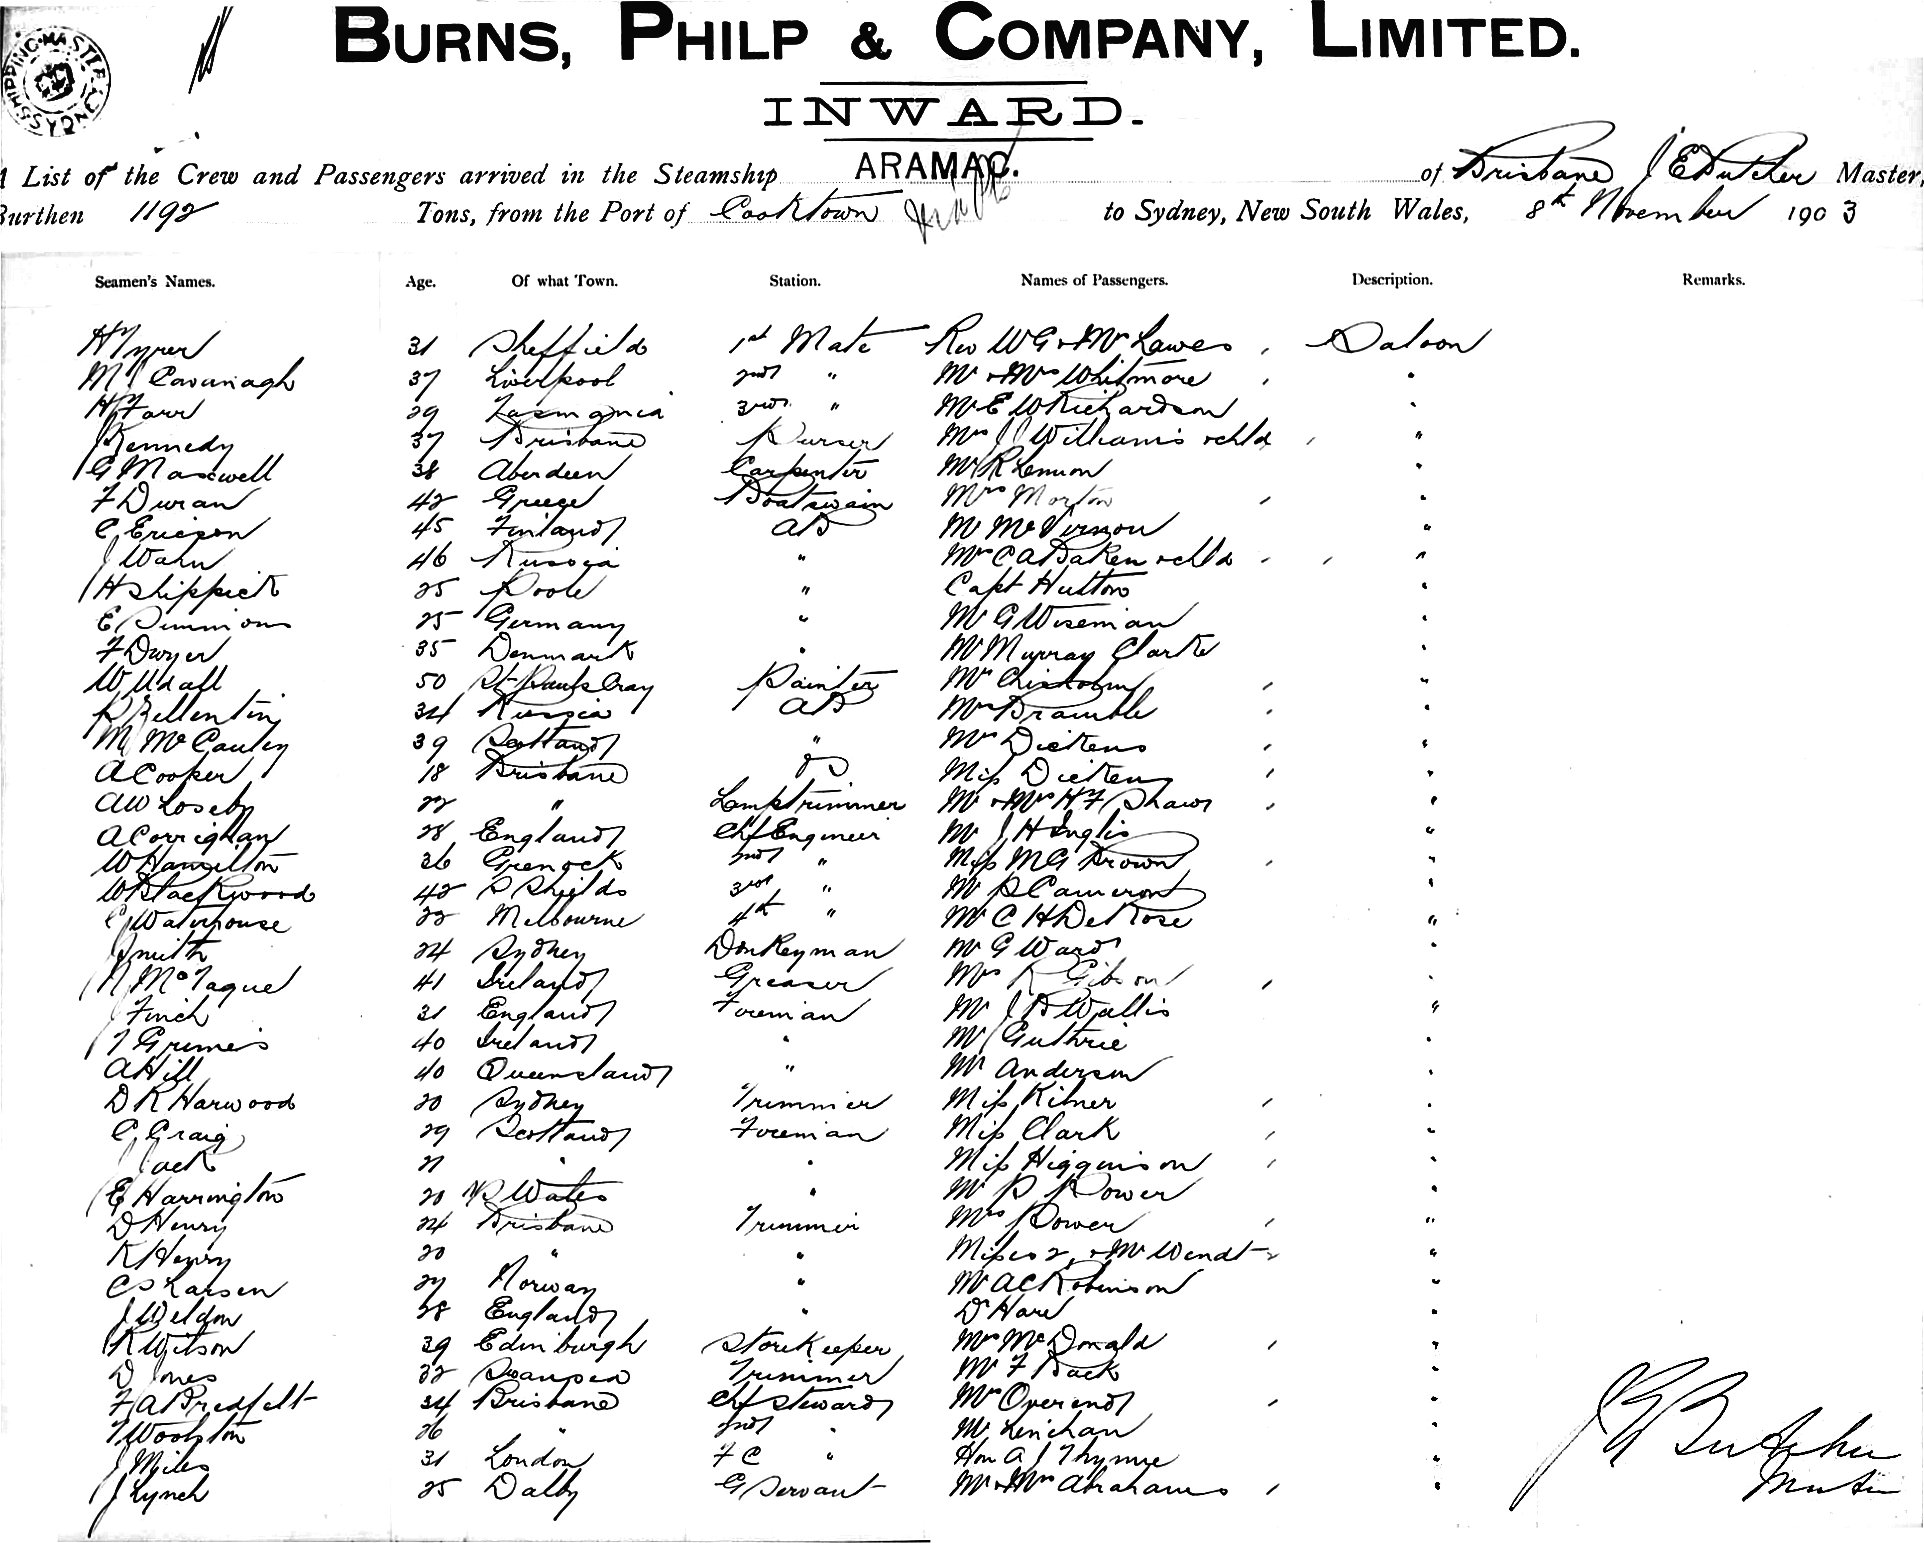 BURNS, PHILP & COMPANY, LIMITED.
INWARD.
A List of the Crew and Passengers arrived in the Steamship ARAMAC. of Brisbane J E Butcher Master,
Burthen 1192 Tons, from the Port of Cooktown to Sydney, New South Wales, 8th November 1903
Seamen's Names. Age. Of what Town. Station. Names of Passengers. Description. Remarks.
H Tyrer 31 Sheffield 1st Mate Rev W G & Mrs Lawes Saloon
M J Cavanagh 37 Liverpool 2nd " Mr & Mrs Whitmore "
H Farr 29 Tasmania 3rd " Mr E W Richardson "
J Kennedy 37 Brisbane Purser Mrs J J Williams & chld "
G Maxwell 38 Aberdeen Carpenter Mr R Lennon "
F Duran 42 Greece Boatswain Mrs Morton "
C Ericson 45 Finland AB Mr McVernon "
J Wahn 46 Russia " Mrs C A Baken & chld "
H Shippick 25 Poole " Capt Hutton "
E Simmions 25 Germany " Mr G Wiseman "
F Dwyer 35 Denmark " Mr Murray Clarke "
W Udall 50 St Pauls Cray Painter Mrs Chisholm "
P Bellentin 34 Russia AB Mrs Bramble "
M McCauley 39 Scotland " Mrs Dickens "
A Cooper 18 Brisbane OS Miss Dickens "
A W Loseby 22 " Lamptrimmer Mr & Mrs H F Shaw "
A Corrighan 28 England Chf Engineer Mr J H Inglis "
W Hamilton 26 Grenock 2nd " Miss M G Brown "
W Blackwood 42 S Shields 3rd " Mr S Cameron "
C Waterhouse 22 Melbourne 4th " Mr C H DeRose "
J Smith 24 Sydney Donkeyman Mr G Ward "
N McTague 41 Ireland Greaser Mrs K Gibson "
J Finch 31 England Foreman Mr J B Wallis "
T Grimes 40 Ireland " Mr Guthrie "
A Hill 40 Queensland " Mr Anderson "
D R Harwood 20 Sydney Trimmer Miss Kilner "
C Craig 29 Scotland Foreman Miss Clark "
J Jack 21 " " Miss Higginson "
E Harrington 20 N S Wales " Mr P Power "
D Henry 24 Brisbane Trimmer Mrs Power "
K Henry 20 " " Misses 2 & Mr Wendt "
C S Larsen 27 Norway " Mr A C Robinson "
J Weldon 28 England " Dr Hare "
R Wilson 39 Edinburgh Storekeeper Mrs McDonald "
D Jones 32 Swansea Trimmer Mr F Back "
F A Bredfelt 34 Brisbane Chf Steward Mrs Overend "
T Woolston 26 " 2nd " Mr Lenihan "
J Miles 31 London F C " Hon A J Thynne "
J Lynch 25 Dalby G Servant Mr & Mrs Abrahams "
J E Butcher
Master